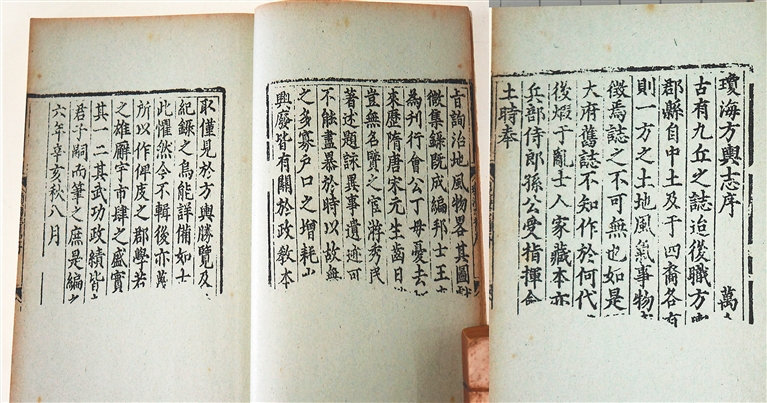 瓊海方輿志序 萬
古有九丘之誌迨後職方
郡縣自中土及于四裔各有
則一方之土地風氣事物
徵焉誌之不可無也如是
大府舊誌不知作於何代
後燬于亂士人家藏本亦
兵部侍郎孫公受指揮
土時奉
旨詢治地風物畧其圖
徵集錄既成編邦士王
為刊行會公丁母憂去
來歷隋唐宋元生齒日
豈無名賢之宦游秀民
著述題詠異事遺迹可
不能盡暴於時以故無
之多寡戶口之增耗山
興廢皆有關於政教本
取僅見於方輿勝覽及
紀錄之烏能詳備如士
此懼然今不輯後亦
所以作俾庋之郡學若
之雄廨宇市肆之盛實
其一二其武功政績皆
君子嗣而筆之庶是編之
六年辛亥秋八月